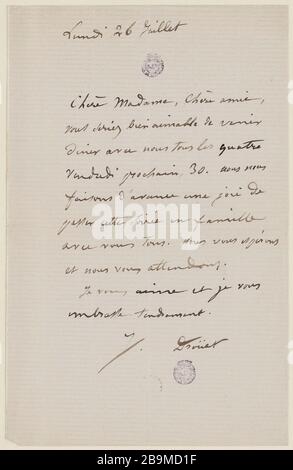 Lundi 26 Juillet
Chère Madame, Chère amie,
vous seriez bien aimable de venir
dîner avec nous tous les quatre
vendredi prochain, 30. nous nous
faisons d'avance une joie de
passer cette soirée en famille
avec vous tous. nous vous espérons
et nous vous attendons.
Je vous aime et je vous
embrasse tendrement.
J. Droüet
alamy
Image ID: 2B9MD1F
www.alamy.com